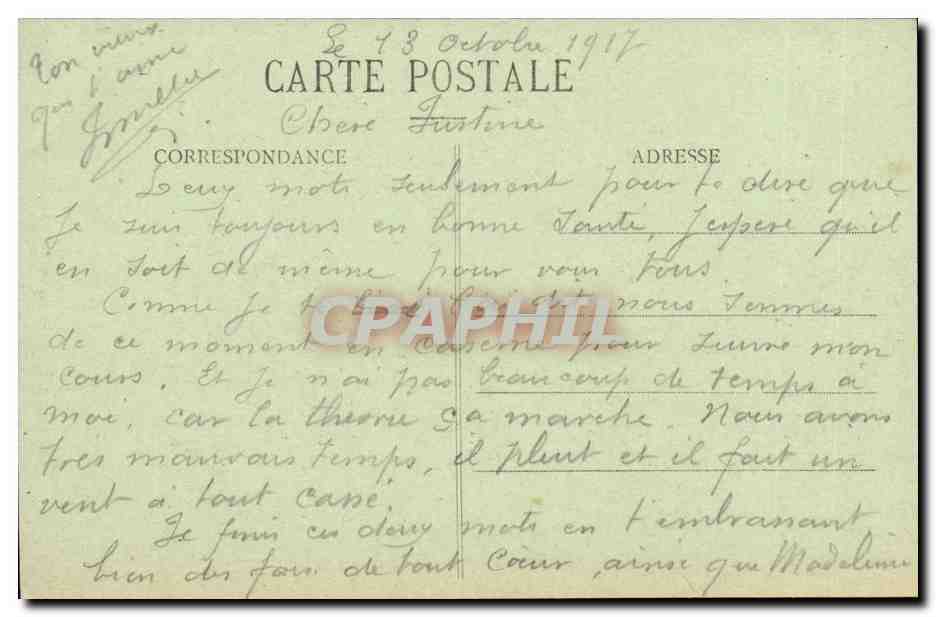 Le 13 Octobre 1917
CARTE POSTALE
Chere Justine
CORRESPONDANCE
ADRESSE
Deux mots seulement pour te dire que
Je suis toujours en bonne Santé, J'espere qu'il
en soit de même pour vous tous
Comme Je t dit, nous sommes
CPAPHIL
de ce moment en caserne pour suivre mon
cours. Et Je n'ai pas beaucoup de temps à
moi, car la théorie ça marche. Nous avons
tres mauvais temps, il pleut et il fait un
vent à tout casse.
Je finis ces deux mots en t'embrassant
bien des fois de tout Cœur, ainsi que Madeleine
ton vieux
qui t'aime